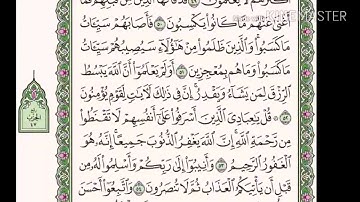 أَكْثَرَهُمْ لَا يَعْلَمُونَ ٤٩ قَدْ قَالَهَا الَّذِينَ مِن قَبْلِهِمْ فَمَا
أَغْنَىٰ عَنْهُم مَّا كَانُوا يَكْسِبُونَ ٥٠ فَأَصَابَهُمْ سَيِّئَاتُ
مَا كَسَبُوا وَالَّذِينَ ظَلَمُوا مِنْ هَٰؤُلَاءِ سَيُصِيبُهُمْ سَيِّئَاتُ
مَا كَسَبُوا وَمَا هُم بِمُعْجِزِينَ ٥١ أَوَلَمْ يَعْلَمُوا أَنَّ اللَّهَ يَبْسُطُ
الرِّزْقَ لِمَن يَشَاءُ وَيَقْدِرُ إِنَّ فِي ذَٰلِكَ لَآيَاتٍ لِّقَوْمٍ يُؤْمِنُونَ
٥٢ قُلْ يَا عِبَادِيَ الَّذِينَ أَسْرَفُوا عَلَىٰ أَنفُسِهِمْ لَا تَقْنَطُوا
مِن رَّحْمَةِ اللَّهِ إِنَّ اللَّهَ يَغْفِرُ الذُّنُوبَ جَمِيعًا إِنَّهُ هُوَ
الْغَفُورُ الرَّحِيمُ ٥٣ وَأَنِيبُوا إِلَىٰ رَبِّكُمْ وَأَسْلِمُوا لَهُ مِن
قَبْلِ أَن يَأْتِيَكُمُ الْعَذَابُ ثُمَّ لَا تُنصَرُونَ ٥٤ وَاتَّبِعُوا أَحْسَنَ